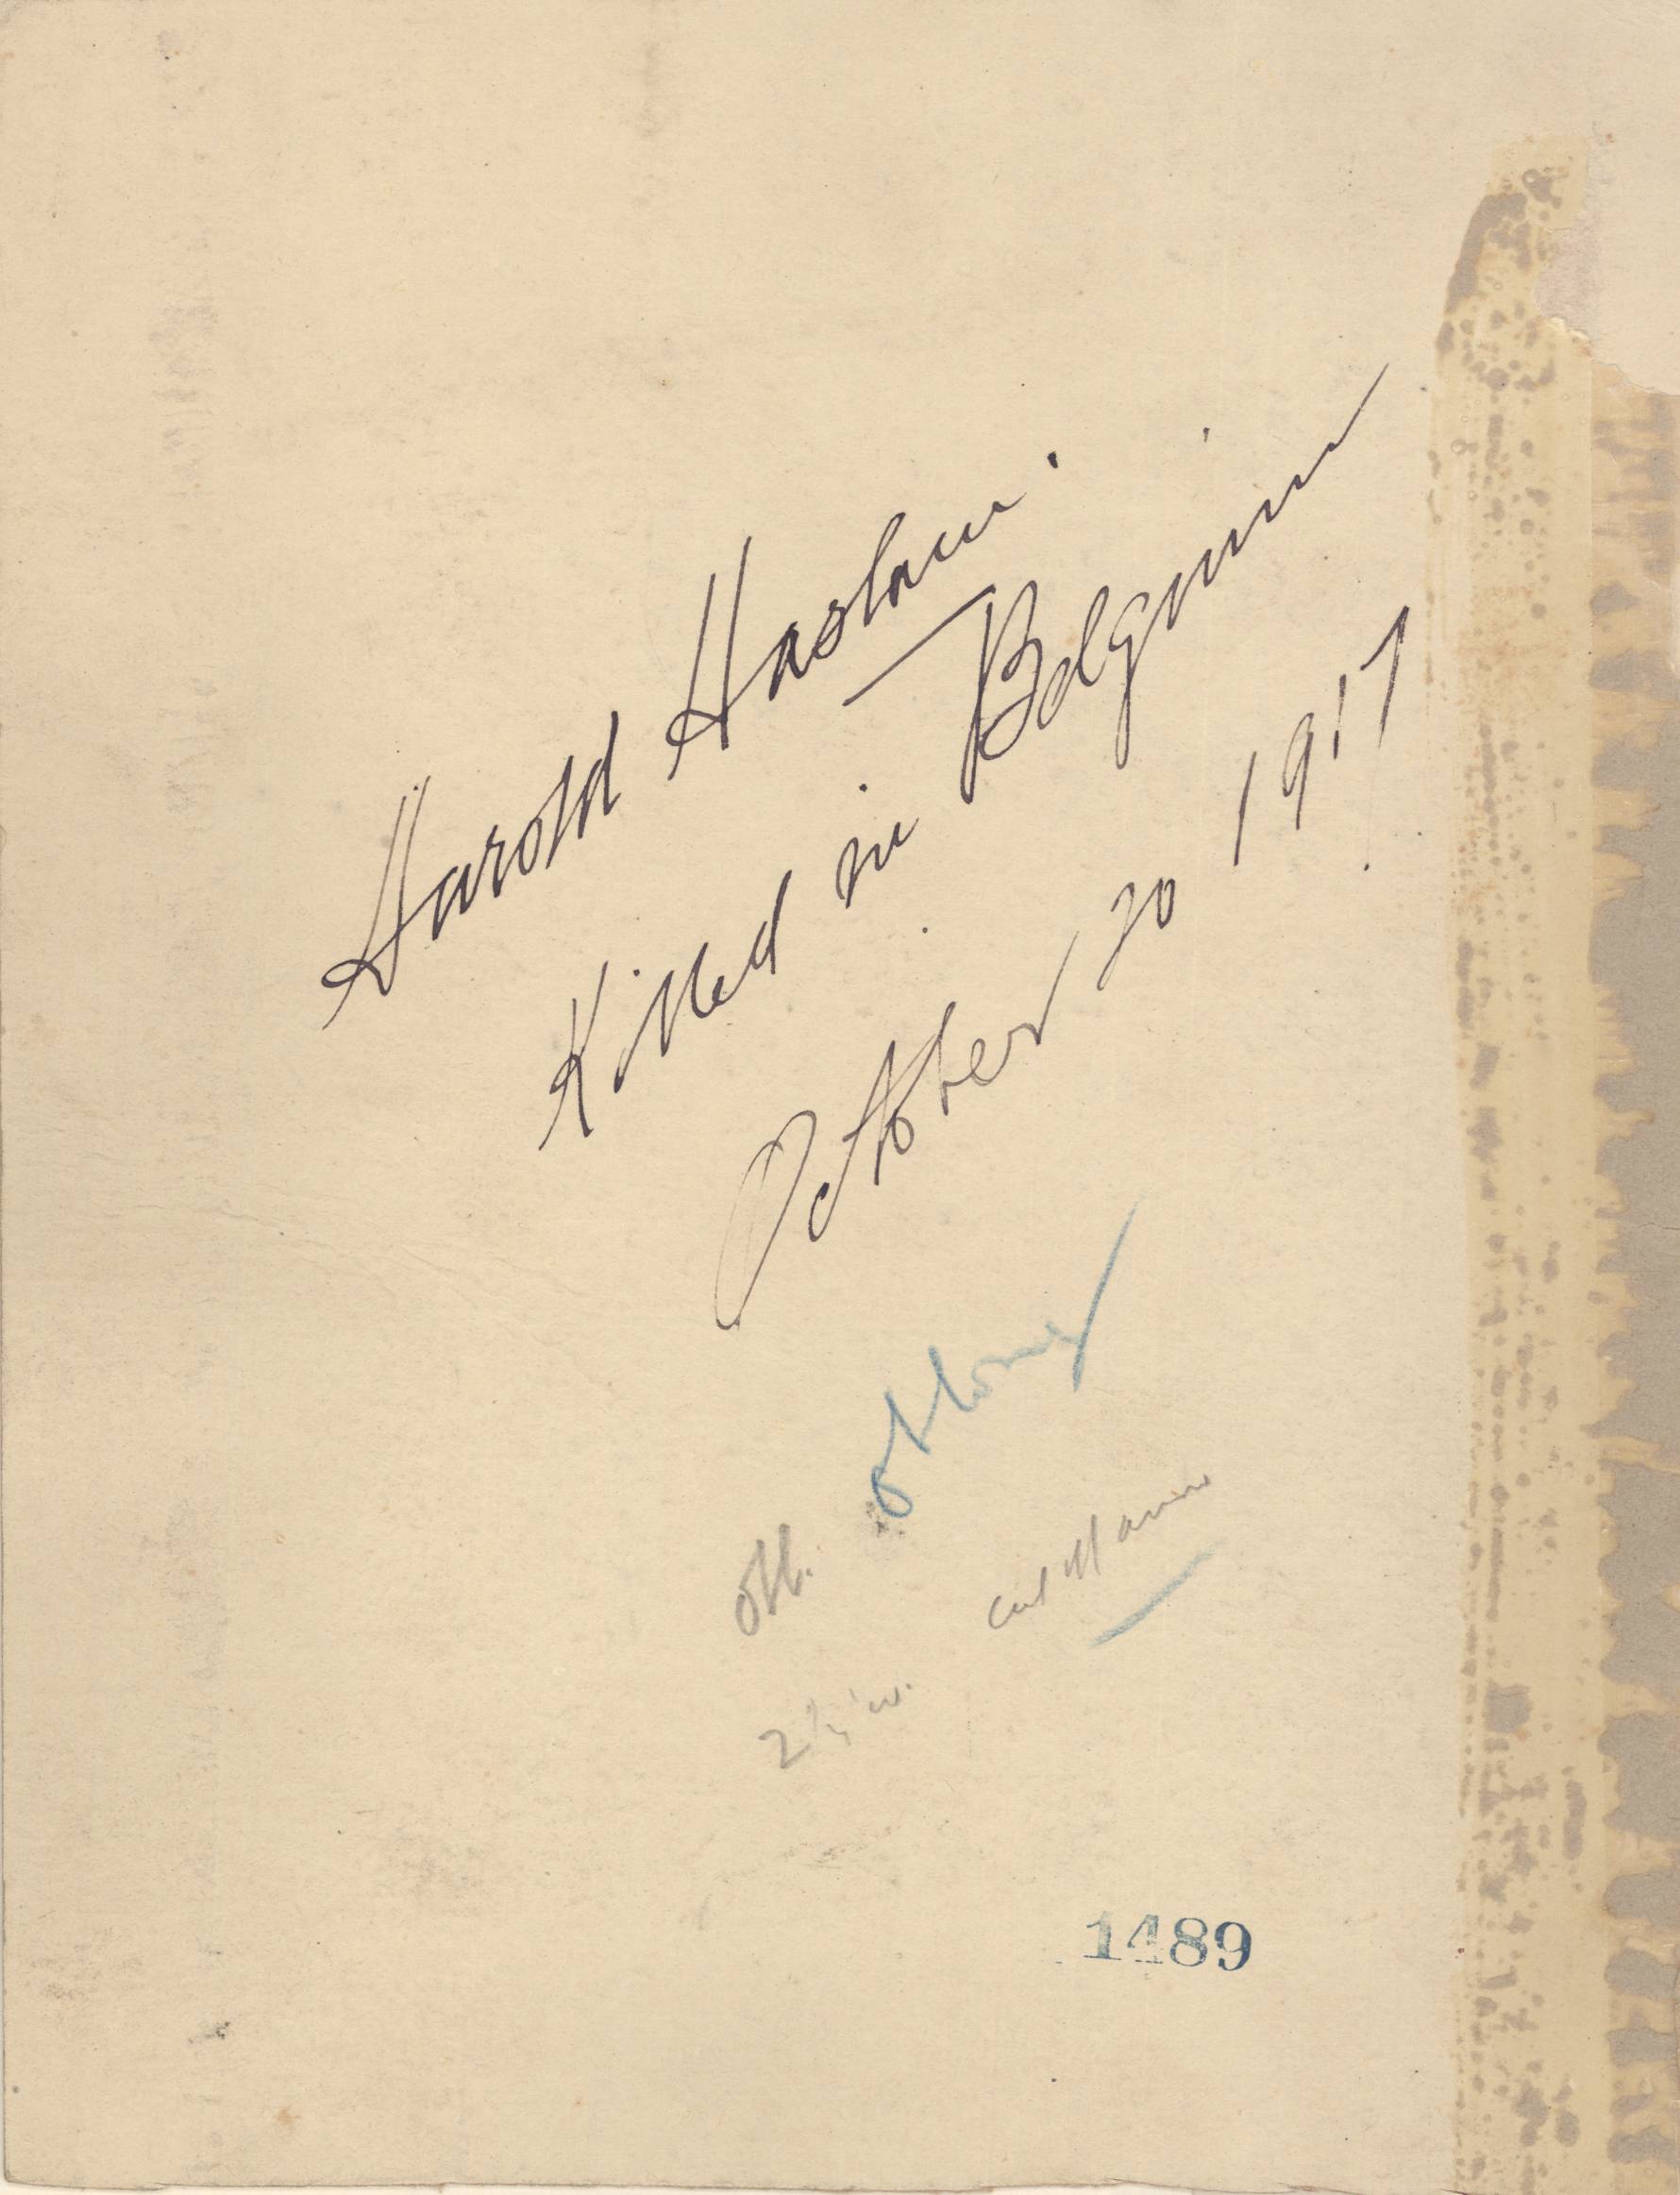 Harold Haslam.
Killed in Belgium
October 20 1917
Off.
2 1/2 in.
1489